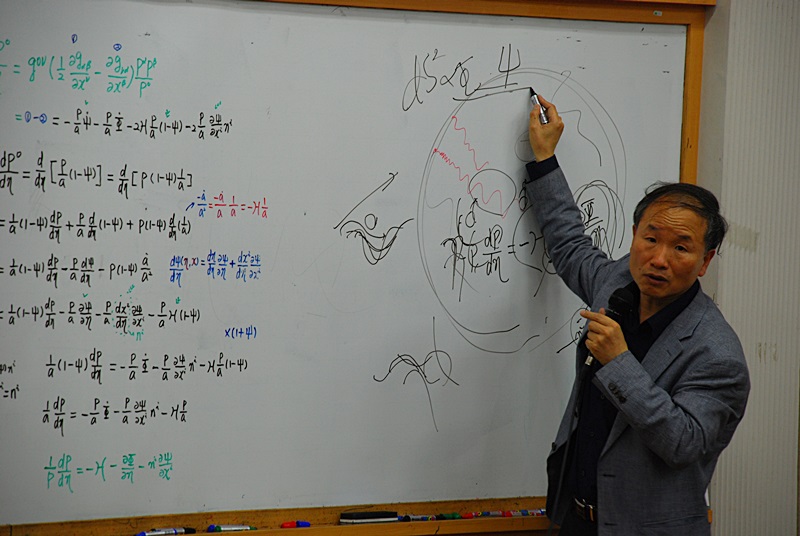 ① ②
= g⁰ᵛ (1/2 ∂g_αβ/∂x^ν - ∂g_να/∂x^β) P^αP^β/P⁰
= ①-② = -P/a Ψ̇ - P/a Φ̇ - 2ℋ P/a (1-Ψ) - 2 P/a ∂Ψ/∂xⁱ nⁱ
dP⁰/dη = d/dη [P/a (1-Ψ)] = d/dη [P(1-Ψ) 1/a]
-ȧ/a² = -ȧ/a 1/a = -ℋ 1/a
= 1/a (1-Ψ) dP/dη + P/a d/dη (1-Ψ) + P(1-Ψ) d/dη (1/a)
= 1/a (1-Ψ) dP/dη - P/a dΨ/dη - P(1-Ψ) ȧ/a²
dΨ/dη (η,x) = dη/dη ∂Ψ/∂η + dxⁱ/dη ∂Ψ/∂xⁱ
= 1/a (1-Ψ) dP/dη - P/a ∂Ψ/∂η - P/a dxⁱ/dη ∂Ψ/∂xⁱ - P/a ℋ (1-Ψ)
nⁱ
×(1+Ψ)
1/a (1-Ψ) dP/dη = -P/a Φ̇ - P/a ∂Ψ/∂xⁱ nⁱ - ℋ P/a (1-Ψ)
1/a dP/dη = -P/a Φ̇ - P/a ∂Ψ/∂xⁱ nⁱ - ℋ P/a
1/P dP/dη = -ℋ - ∂Φ/∂η - nⁱ ∂Ψ/∂xⁱ
Ψ
dP/dη = -ℋ